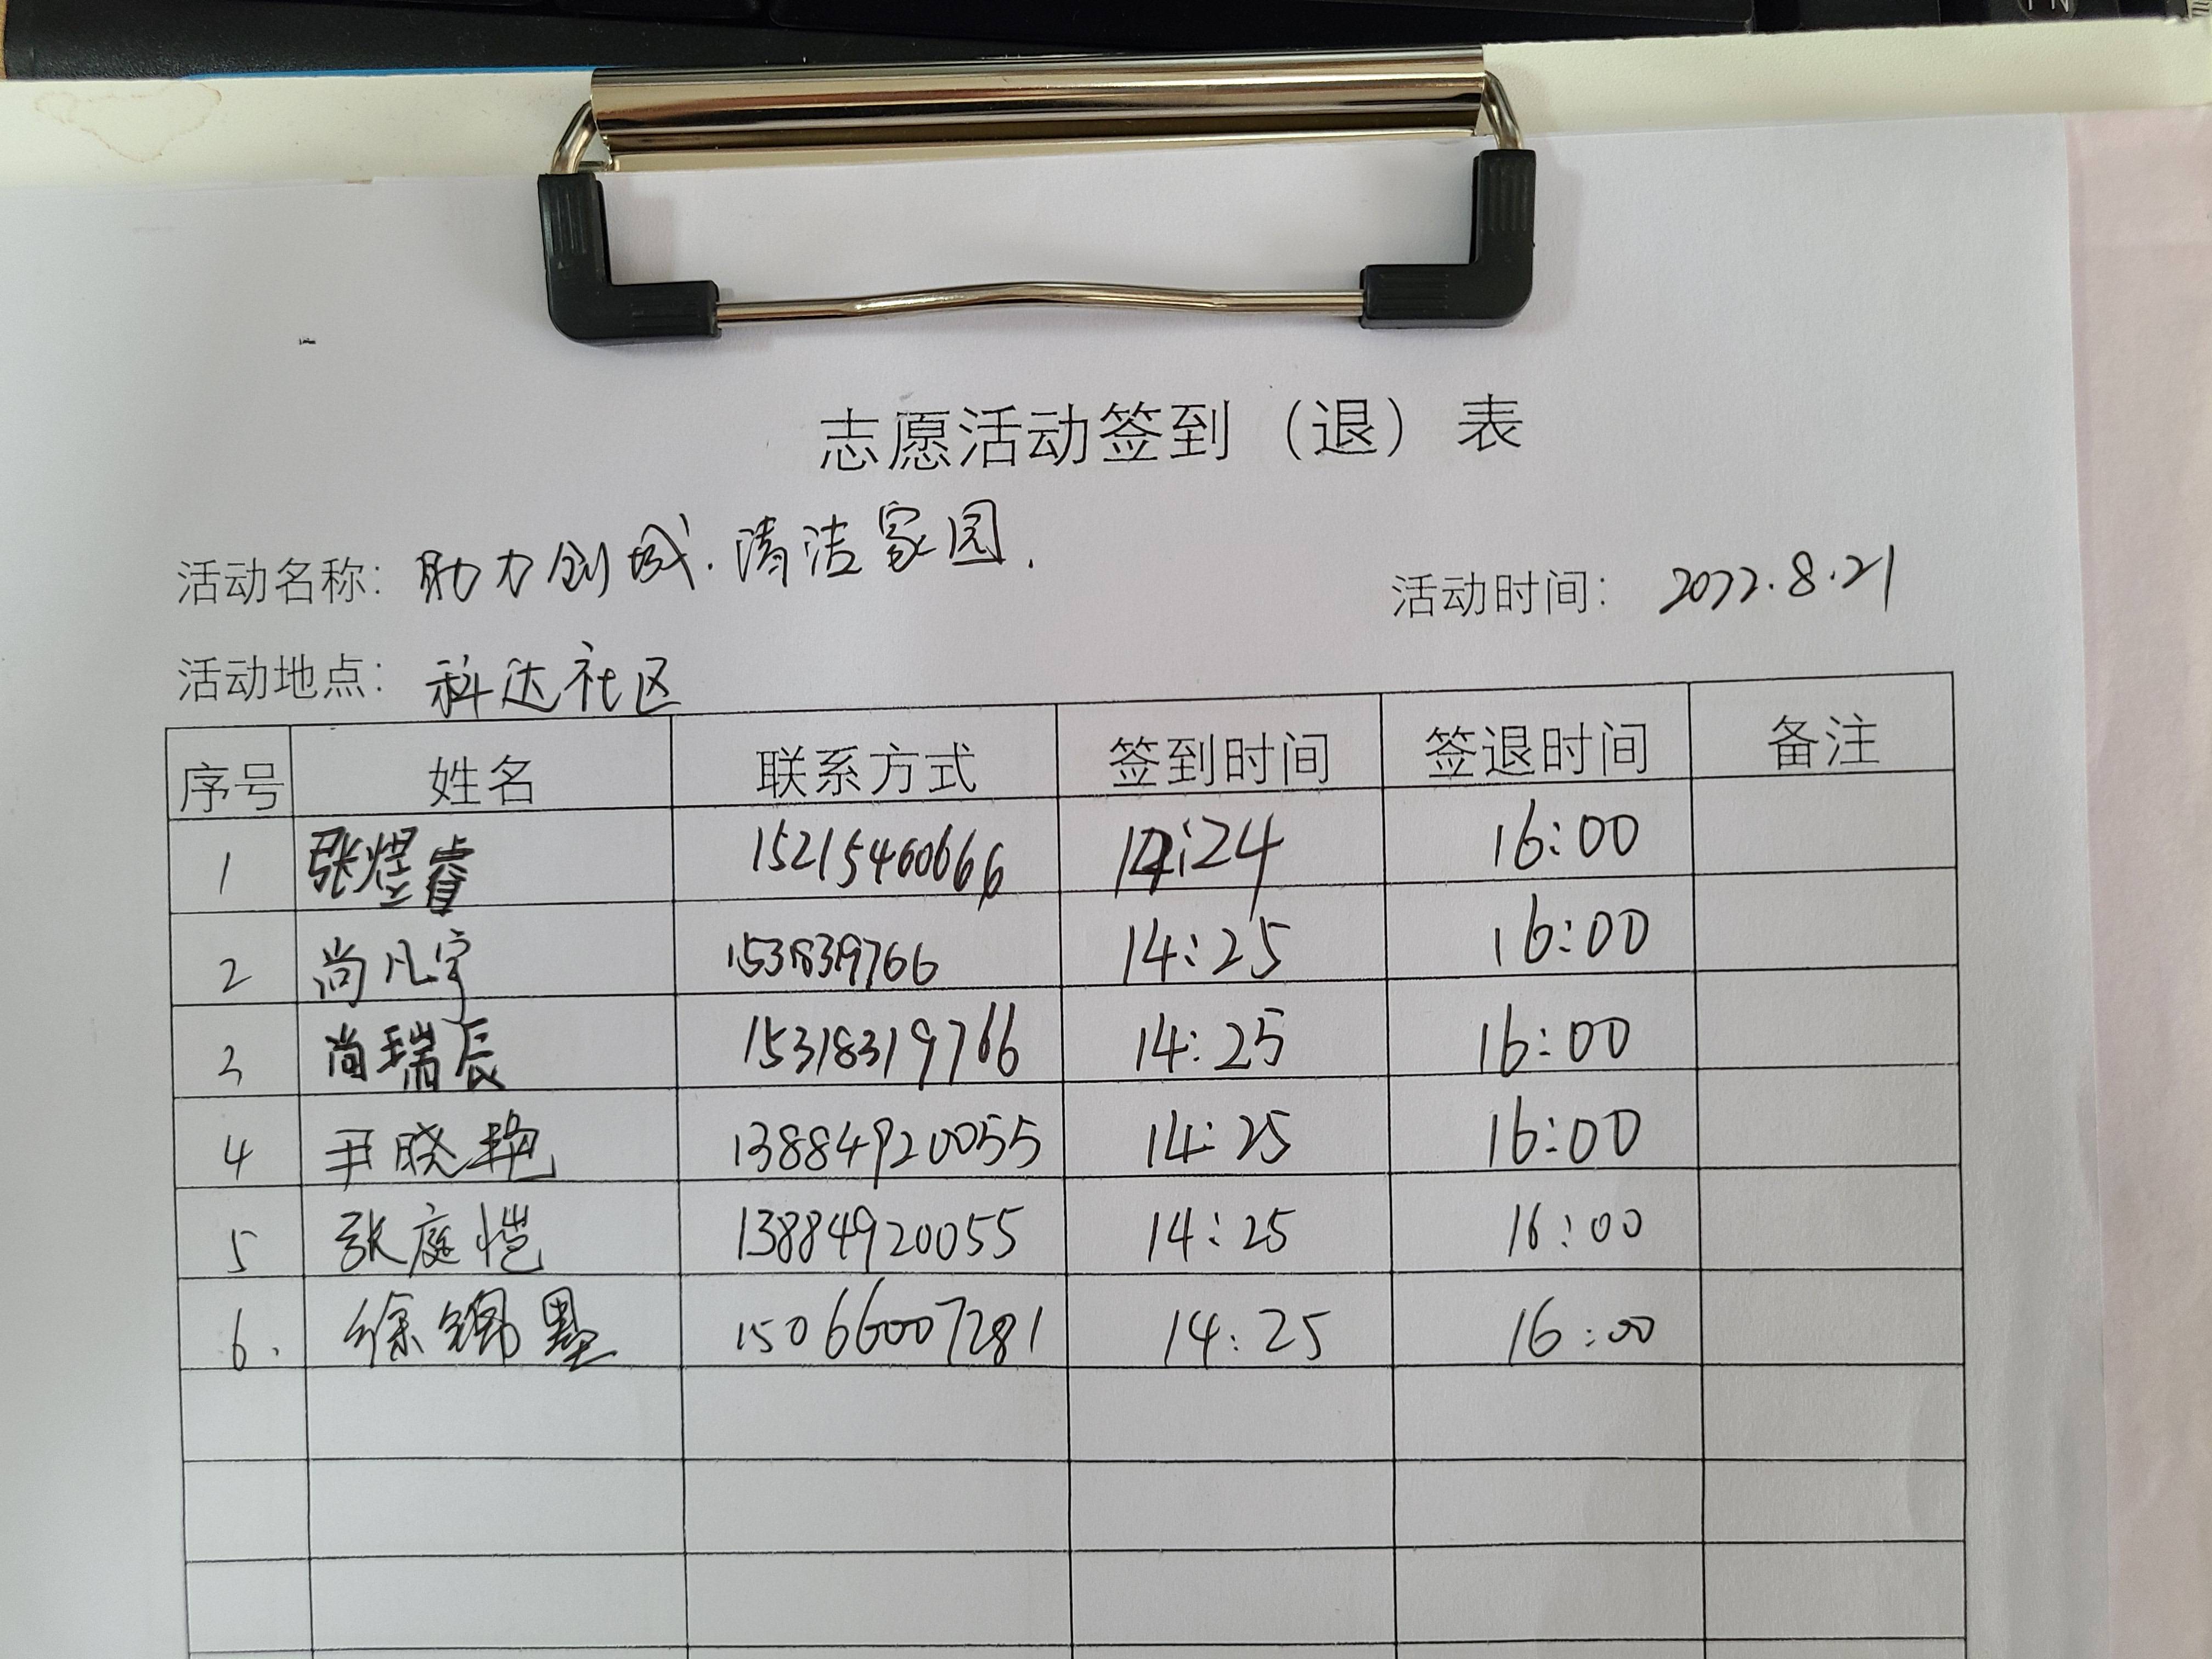 志愿活动签到（退）表
活动名称：助力创城.清洁家园.
活动时间：2022.8.21
活动地点：科达社区
序号 姓名 联系方式 签到时间 签退时间 备注
1 张煜睿 15215460666 14:24 16:00
2 尚凡宇 14:25 16:00
3 尚瑞辰 15318319766 14:25 16:00
4 尹晓艳 13884920055 14:25 16:00
5 张庭恺 13884920055 14:25 16:00
6. 徐锦墨 15066007281 14:25 16:00